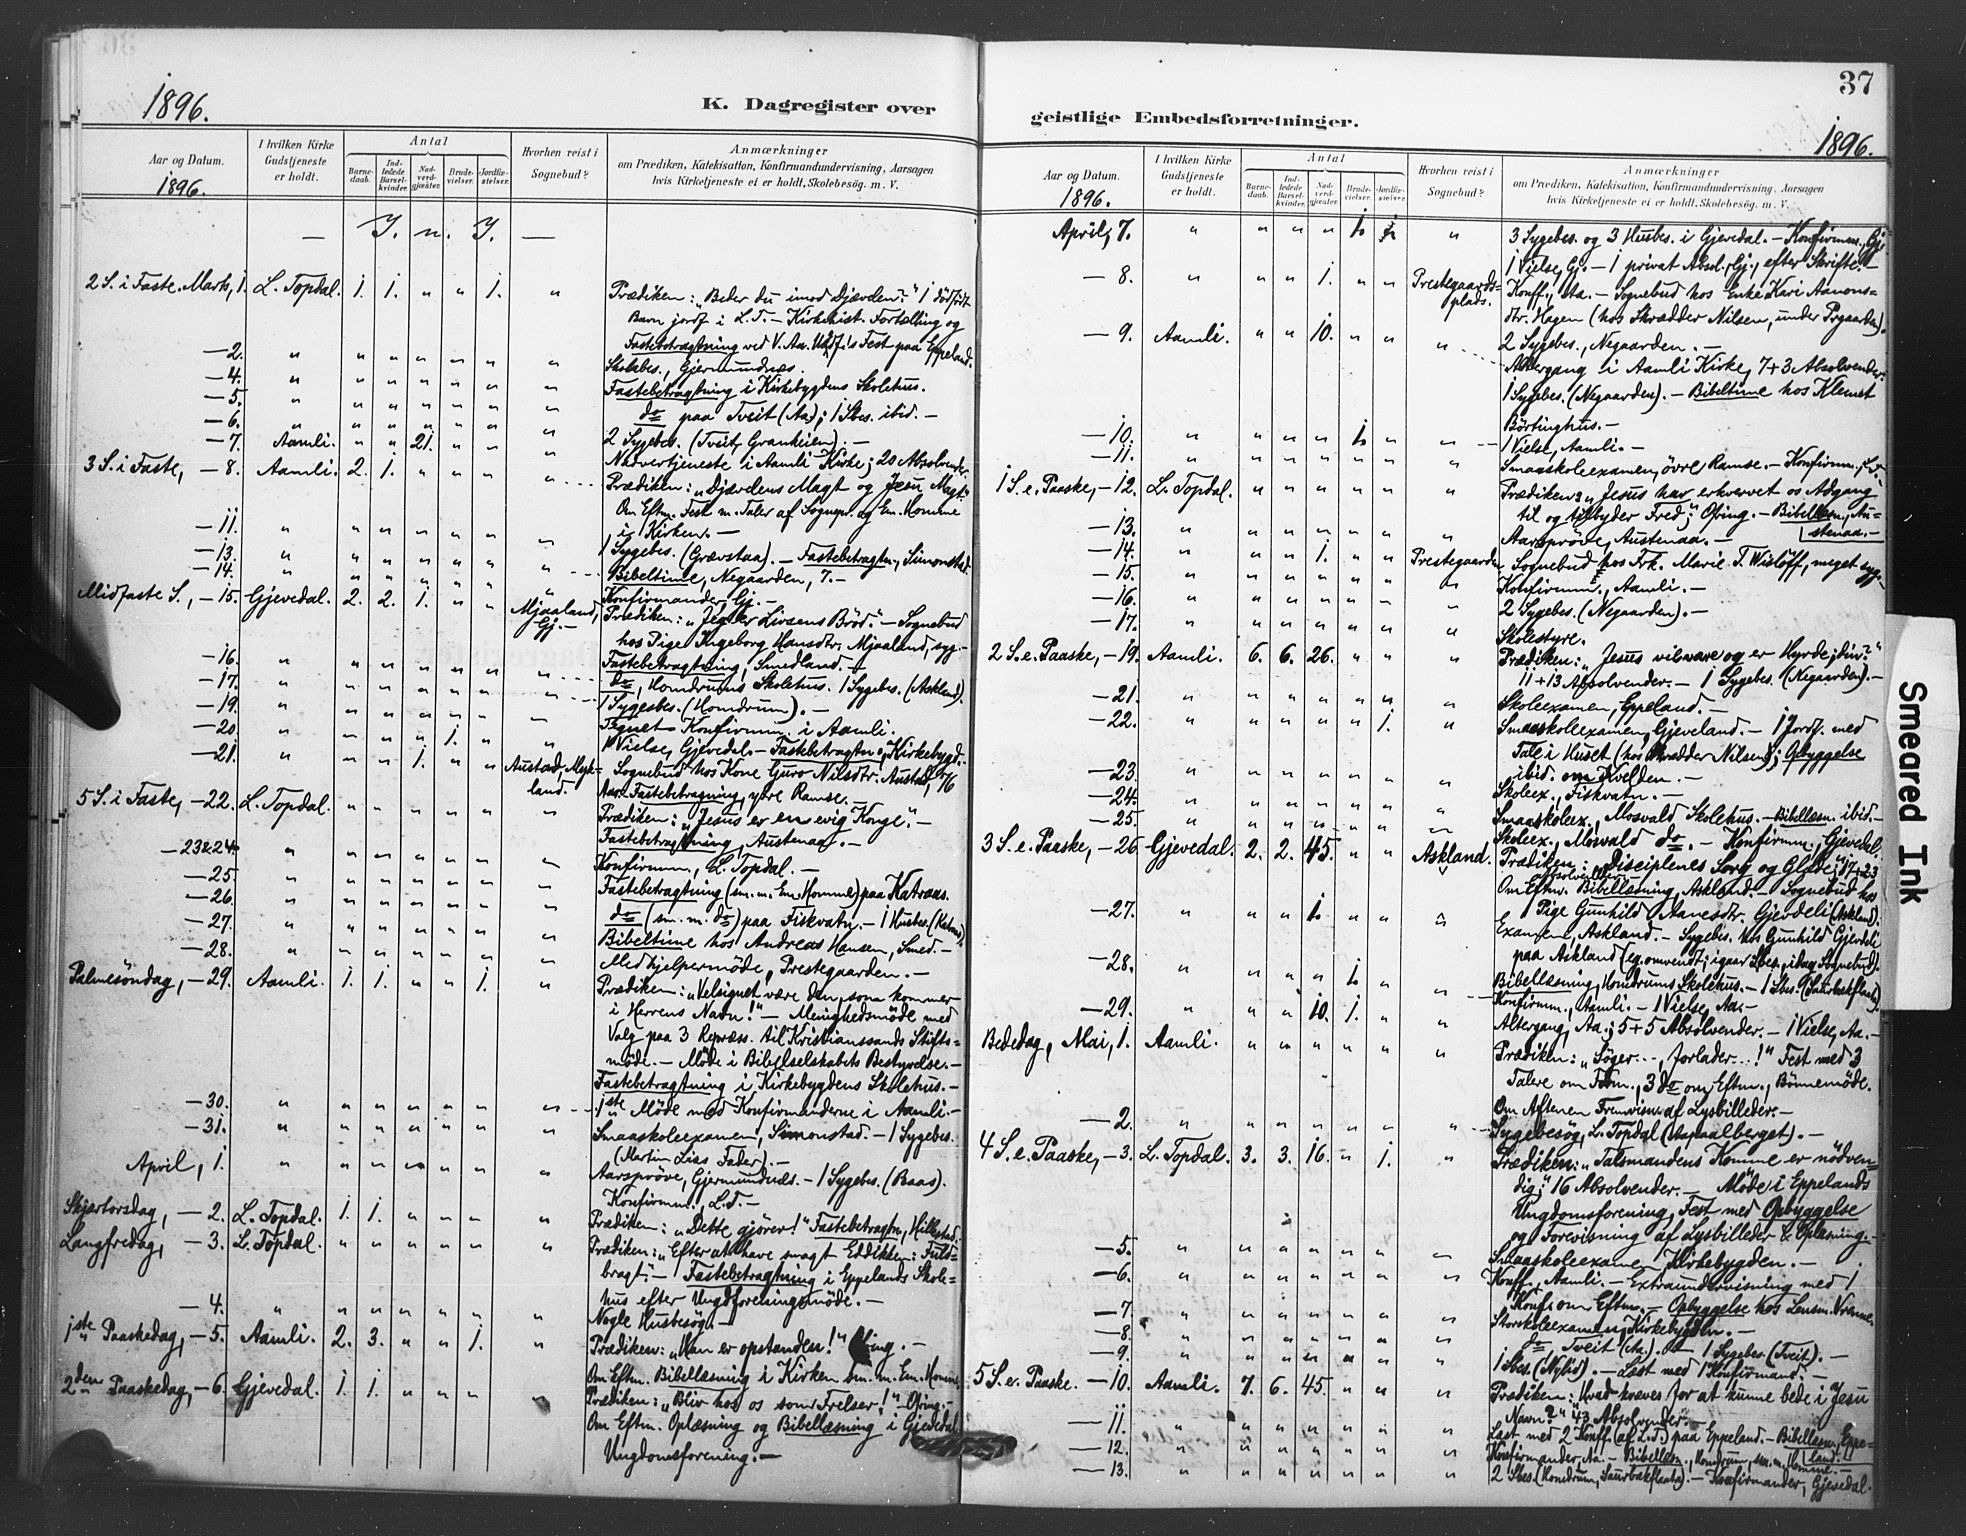 1896.
K. Dagregister over
Aar og Datum.
1896.
I hvilken Kirke Gudstjeneste er holdt.
Antal
Barnedaab.
Indledede Barselkvinder.
Nadverdgjæster.
Brudevielser.
Jordfæstelser.
Hvorhen reist i Sognebud?
Anmærkninger
om Prædiken, Katekisation, Konfirmandundervisning, Aarsagen
hvis Kirketjeneste ei er holdt, Skolebesøg. m. V.
2 S. i Faste. Marts, 1. L. Topdal. 1. 1. " " 1. " Prædiken: „Beder du imod Djævelen?" 1 dödfödt
Barn jordf. i L. T. - Kirkehist. Fortælling og
Fastebetragtning ved V. Aa. Fest paa Eppeland.
- 2. " " " " " " " Skolebes., Gjermundnæs.
- 4. " " " " " " " Fastebetragtning i Kirkebygdens Skolehus.
- 5. " " " " " " " do paa Tveit (Aa); 1 Sbes. ibid. -
- 6. " " " " " " " 2 Sygebes. (Tveit, Granheien). -
- 7. Aamli. " " 21. " " " Nadvertjeneste i Aamli Kirke; 20 Absolvender.
3 S. i Faste, - 8. Aamli. 2. 1. " " " " Prædiken: „Djævelens Magt og Jesu Magt."
Om Eftm. Fest m. Taler af Sognepr. og Em. Homme
i Kirken. -
- 11. " " " " " " " 1 Sygebes. (Grævstaa). - Fastebetragtn., Simonstad.
- 13. " " " " " " " Bibeltime, Negaarden, 7. -
- 14. " " " " " " " Konfirmander, Gj. -
Midfaste S., - 15. Gjevedal. 2. 2. 1. " " Mjaaland, Gj. - Prædiken: „Jeg er Livsens Bröd." - Sognebud
hos Pige Ingeborg Hansdtr. Mjaaland, syg. -
- 16. " " " " " " " Fastebetragtning, Smedland. -
- 17. " " " " " " " do, Homdrums Skolehus. 1 Sygebes. (Askland).
- 19. " " " " " " " 1 Sygebes. (Homdrum). -
- 20. " " " " 1. " " Konfirmm. i Aamli.
- 21. " " " 1. " " Austad, Mykland. 1 Vielse, Gjevedal. - Fastebetragtn., Kirkebygd. -
Sognebud hos Kone Guro Nilsdtr. Austad,
5 S. i Faste, - 22. L. Topdal. " " " " " " Fastebetragtning, ytre Ramse. -
Prædiken: „Jesus er en evig Konge." -
Fastebetragtning, Austenaa. -
- 23&24. " " " " " " " Konfirmm., L. Topdal. -
- 25 " " " " " " " Fastebetragtning (sm. m. Em. Homme) paa Katraas.
- 26. " " " " " " " do (sm. m. do) paa Fiskvatn. - 1 Husbes.
- 27. " " " " " " " Bibeltime hos Andreas Hansen, Smed. -
- 28. " " " " " " " Medhjelpermöde, Prestegaarden. -
Palmesöndag, - 29. Aamli. 1. 1. " " 1. " Prædiken: „Velsignet være den, som kommer
i Herrens Navn!" - Menighedsmöde med
Valg paa 3 Repræs. til Kristianssands Stifts-
möde. - Möde i Bibelselskabets Bestyrelse. -
Fastebetragtning i Kirkebygdens Skolehus. -
- 30. " " " " " " " 1ste Möde med Konfirmanderne i Aamli. -
- 31. " " " " " " " Smaaskoleexamen, Simonstad. - 1 Sygebes.
(Martin Lias Fader). -
April, 1. " " " " " " " Aarspröve, Gjermundnæs. - 1 Sygebes. (Baas).
Konfirmm., L. T. -
Skjærtorsdag, - 2. L. Topdal. 1. 1. " " " " Prædiken: „Dette gjörer!" Fastebetragtn., Hillestad.
Langfredag, - 3. L. Topdal. " " " " " " Prædiken: „Efter at have smagt Eddikken: Fuld-
bragt." - Fastebetragtning i Eppelands Skole-
hus efter Ungdforeningsmöde. -
- 4. " " " " " " " Nogle Husbesög. -
1ste Paaskedag, - 5. Aamli. 2. 3. " " 1. " Prædiken: „Han er opstanden!" -
Om Eftm. Bibellæsning i Kirken sm. m. Em. Homme.
2den Paaskedag, - 6. Gjevedal. 1. 1. " " " " Prædiken: „Bliv hos os som Frelser!" - Ofring. -
Om Eftm. Oplæsning og Bibellæsning i Gjevedal
Ungdomsforening. -
37
geistlige Embedsforretninger.
1896.
Aar og Datum.
1896.
I hvilken Kirke Gudstjeneste er holdt.
Antal
Barnedaab.
Indledede Barselkvinder.
Nadverdgjæster.
Brudevielser.
Jordfæstelser.
Hvorhen reist i Sognebud?
Anmærkninger
om Prædiken, Katekisation, Konfirmandundervisning, Aarsagen
hvis Kirketjeneste ei er holdt, Skolebesøg. m. V.
April, 7. " " " " 1. " " 3 Sygebes. og 3 Husbes. i Gjevedal. - Konfirmm., Gj.
1 Vielse, Gj. - 1 privat Absol., Gj., efter Skrifte. -
- 8. " " " 1. " " Prestegaardsplads. Konff., Aa. - Sognebud hos Enke Kari Aanons-
dtr. Hagen (hos Skrædder Nilsen, under Prgaarden).
- 9. Aamli. " " 10. " " " 2 Sygebes., Negaarden. -
Altergang i Aamli Kirke, 7+3 Absolvender.
1 Sygebes. (Negaarden). - Bibeltime hos Klemet
Börtinghus. -
- 10. " " " " 1. " " 1 Vielse, Aamli. -
- 11. " " " " " " " Smaaskoleexamen, övre Ramse. - Konfirmm., L. T.
1 S. e. Paaske, - 12. L. Topdal. " " " " " " Prædiken: „Jesus har erhvervet os Adgang
til og tilbyder Fred;" Ofring. - Bibellæsn., Au-
stenaa. -
- 13. " " " " " " " Aarspröve, Austenaa. -
- 14. " " " 1. " " Prestegaarden Sognebud hos Frk. Marie T. Wislöff, meget syg. -
- 15. " " " " " " " Konfirmm., Aamli. -
- 16. " " " " " " " 2 Sygebes. (Negaarden). -
- 17. " " " " " " " Skolestyre.
2 S. e. Paaske, - 19. Aamli. 6. 6. 26. " " " Prædiken: „Jesus vil være og er Hyrde; din?"
11+13 Absolvender. - 1 Sygebes. (Negaarden). -
- 21. " " " " " " " Skoleexamen, Eppeland. -
- 22. " " " " " 1. " Smaaskoleexamen, Gjeveland. - 1 Jordf. med
Tale i Huset (hos Skrædder Nilsen); Opbyggelse
ibid. om Kvelden. -
- 23. " " " " " " " Skoleex., Fiskvatn. -
- 24. " " " " " " " Smaaskoleex., Mosvald Skolehus. - Bibellæsn. ibid. -
- 25 " " " " " " " Skoleex., Moswald do. - Konfirmm., Gjevedal.
3 S. e. Paaske, - 26 Gjevedal. 2. 2. 45. " " Askland. Prædiken: „Disciplenes Sorg og Glæde;" 17+23
Absolvender. -
Om Eftm. Bibellæsning, Askland. - Sognebud hos
Pige Gunhild Aanesdtr. Gjevdeli (Askland).
- 27. " " " 1. " " " Examen, Askland. - Sygebes. hos Gunhild Gjevdeli
paa Askland (eg. omvendt; igaar Sbes., idag Sognebud).
- 28. " " " " 1. " " Bibellæsning, Homdrums Skolehus. - 1 Sbes. (Saurbækflaata).
Konfirmm., Aamli. - 1 Vielse, Aa. -
- 29. " " " 10. 1. " " Altergang, Aa.; 5+5 Absolvender. - 1 Vielse, Aa. -
Bededag, Mai, 1. Aamli. " " " " " " Prædiken: „Söger..., forlader...!" Fest med 3
Talere om Form., 3 do om Eftm., Bönnemöde.
Om Aftenen Fremvisn. af Lysbilleder. -
- 2. " " " " " " " Sygebesög, L. Topdal (Aapaalberget). -
4 S. e. Paaske, - 3. L. Topdal. 3. 3. 16. " 1. " Prædiken: „Talsmandens Komme er nödven-
dig;" 16 Absolvender. - Möde i Eppelands
Ungdomsforening, Fest med Opbyggelse
og Forevisning af Lysbilleder & Oplæsning. -
- 5. " " " " " " " Smaaskoleexamen, Kirkebygden. -
- 6. " " " " " " " Konff., Aamli. - Extraundervisning med 1
Konf. om Eftm. - Opbyggelse hos Lensm. Vrenne.
- 7 " " " " " " " Storskoleexamen, Kirkebygden. -
- 8. " " " " " " " do Tveit (Aa.). - 1 Sygebes. (Tveit). -
- 9. " " " " " " " 1 Sbes. (Nylid). - Læst med 1 Konfirmand. -
5 S. e. Paaske. - 10. Aamli. 7. 6. 45. " " " Prædiken: „Hvad kræves for at kunne bede i Jesu
Navn?" 43 Absolvender. -
- 11. " " " " " " " Læst med 2 Konff. (af L. T.) paa Eppeland. - Bibellæsn., Eppe-
land. -
- 12. " " " " " " " Konfirmander, Aa. - Bibellæsn., Homdrum, sm. m. Homme. -
- 13. " " " " " " " 2 Sbes. (Homdrum, Saurbækflaata). - Konfirmander, Gjevedal.
Smeared Ink